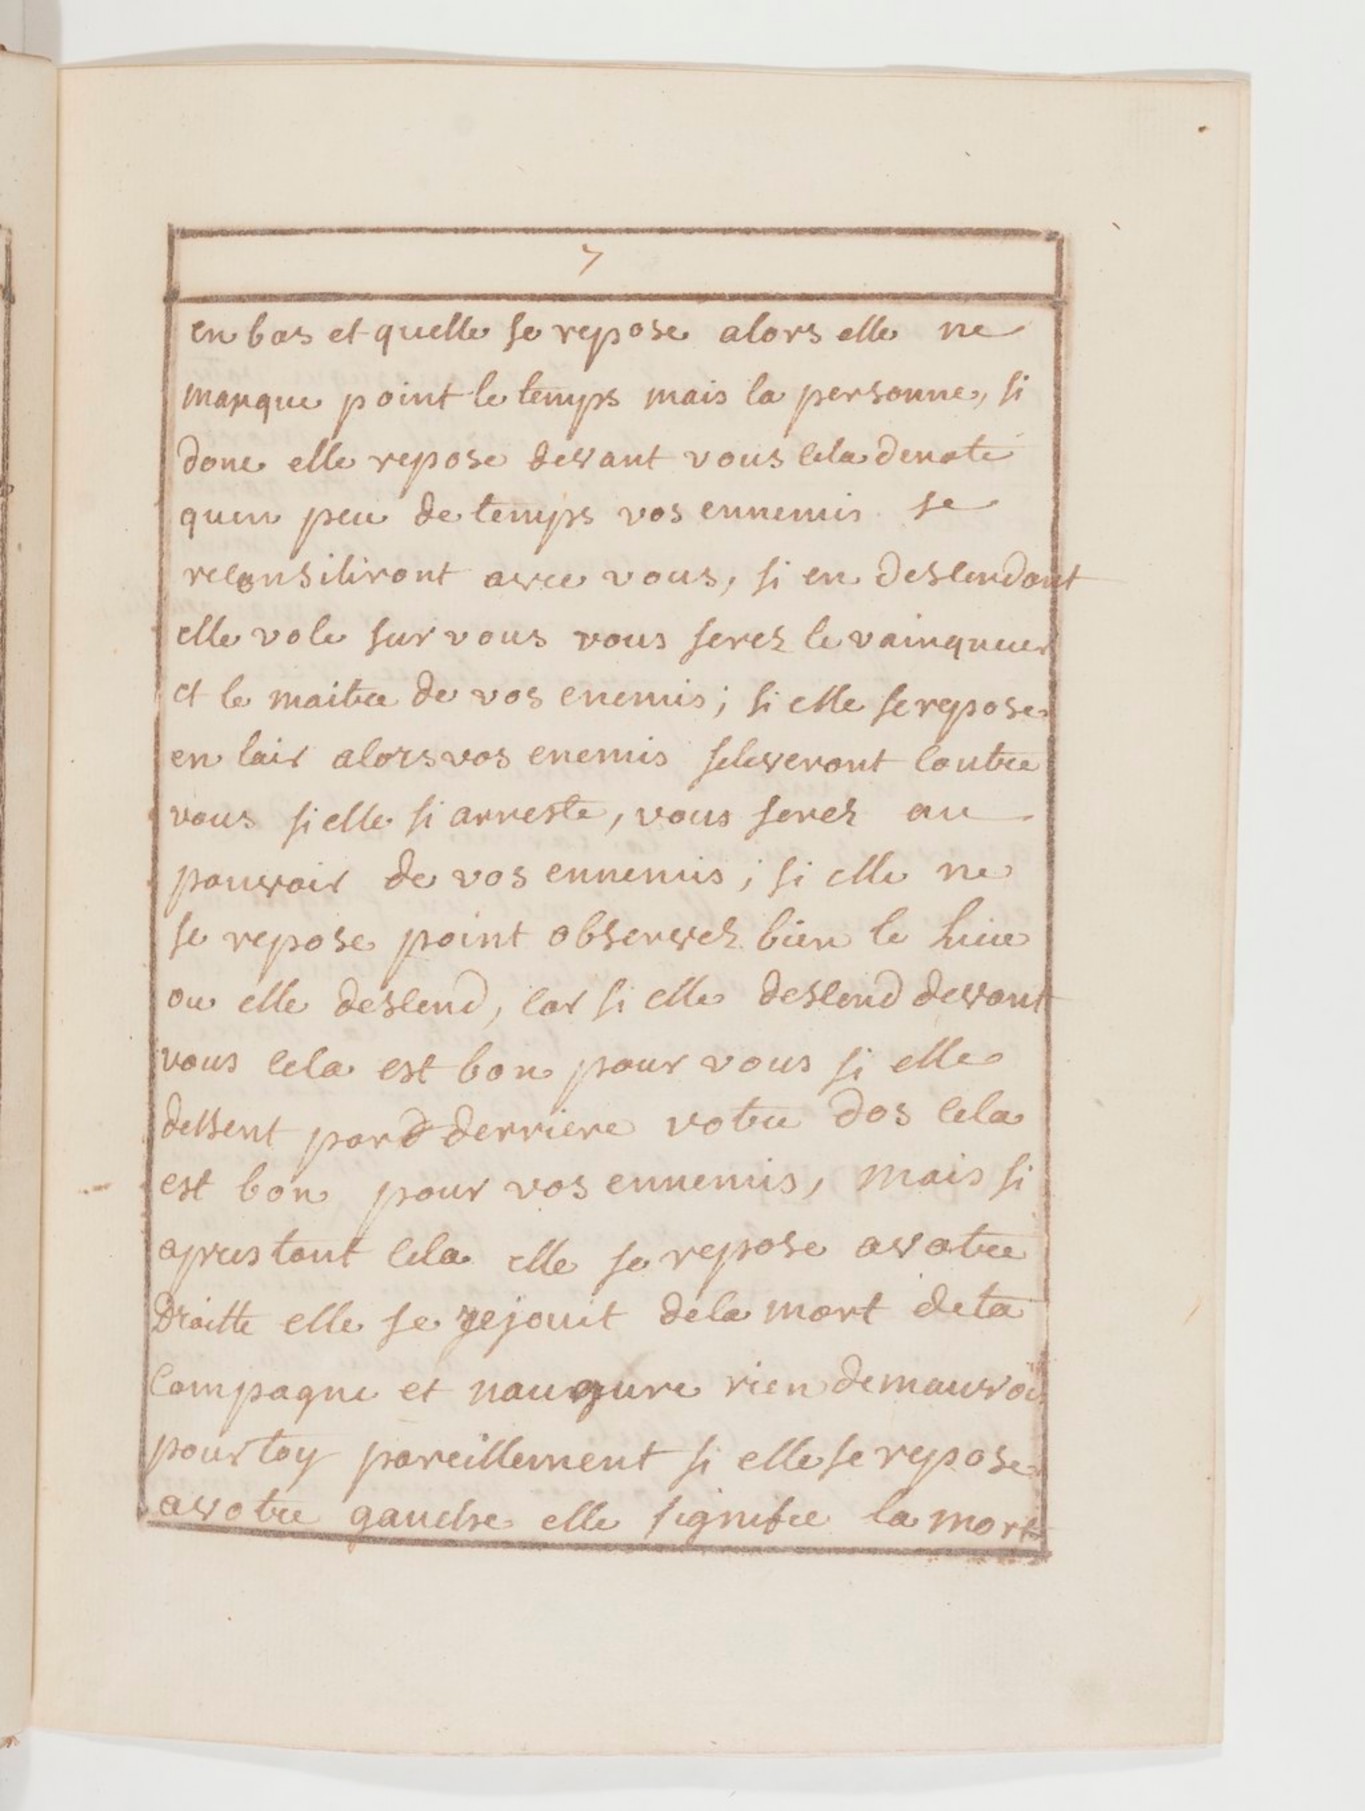 7
en bas et quelle se repose alors elle ne
manque point le temps mais la personne, si
donc elle repose devant vous cela denote
quen peu de temps vos ennemis se
reconsiliront avec vous, si en descendant
elle vole sur vous vous serez le vainqueur
et le maitre de vos enemis; si elle se repose
en lair alors vos enemis seleveront contre
vous si elle si arreste, vous serez au
pouvoir de vos ennemis; si elle ne
se repose point observez bien le lieu
ou elle descend, car si elle descend devant
vous cela est bon pour vous si elle
dessent par derriere votre dos cela
est bon pour vos ennemis, mais si
apres tout cela elle se repose avotre
Droitte elle se rejouit dela mort deta
Compagne et naugure rien de mauvois
pour toy pareillement si elle se repose
avotre gauche elle signifie la mort